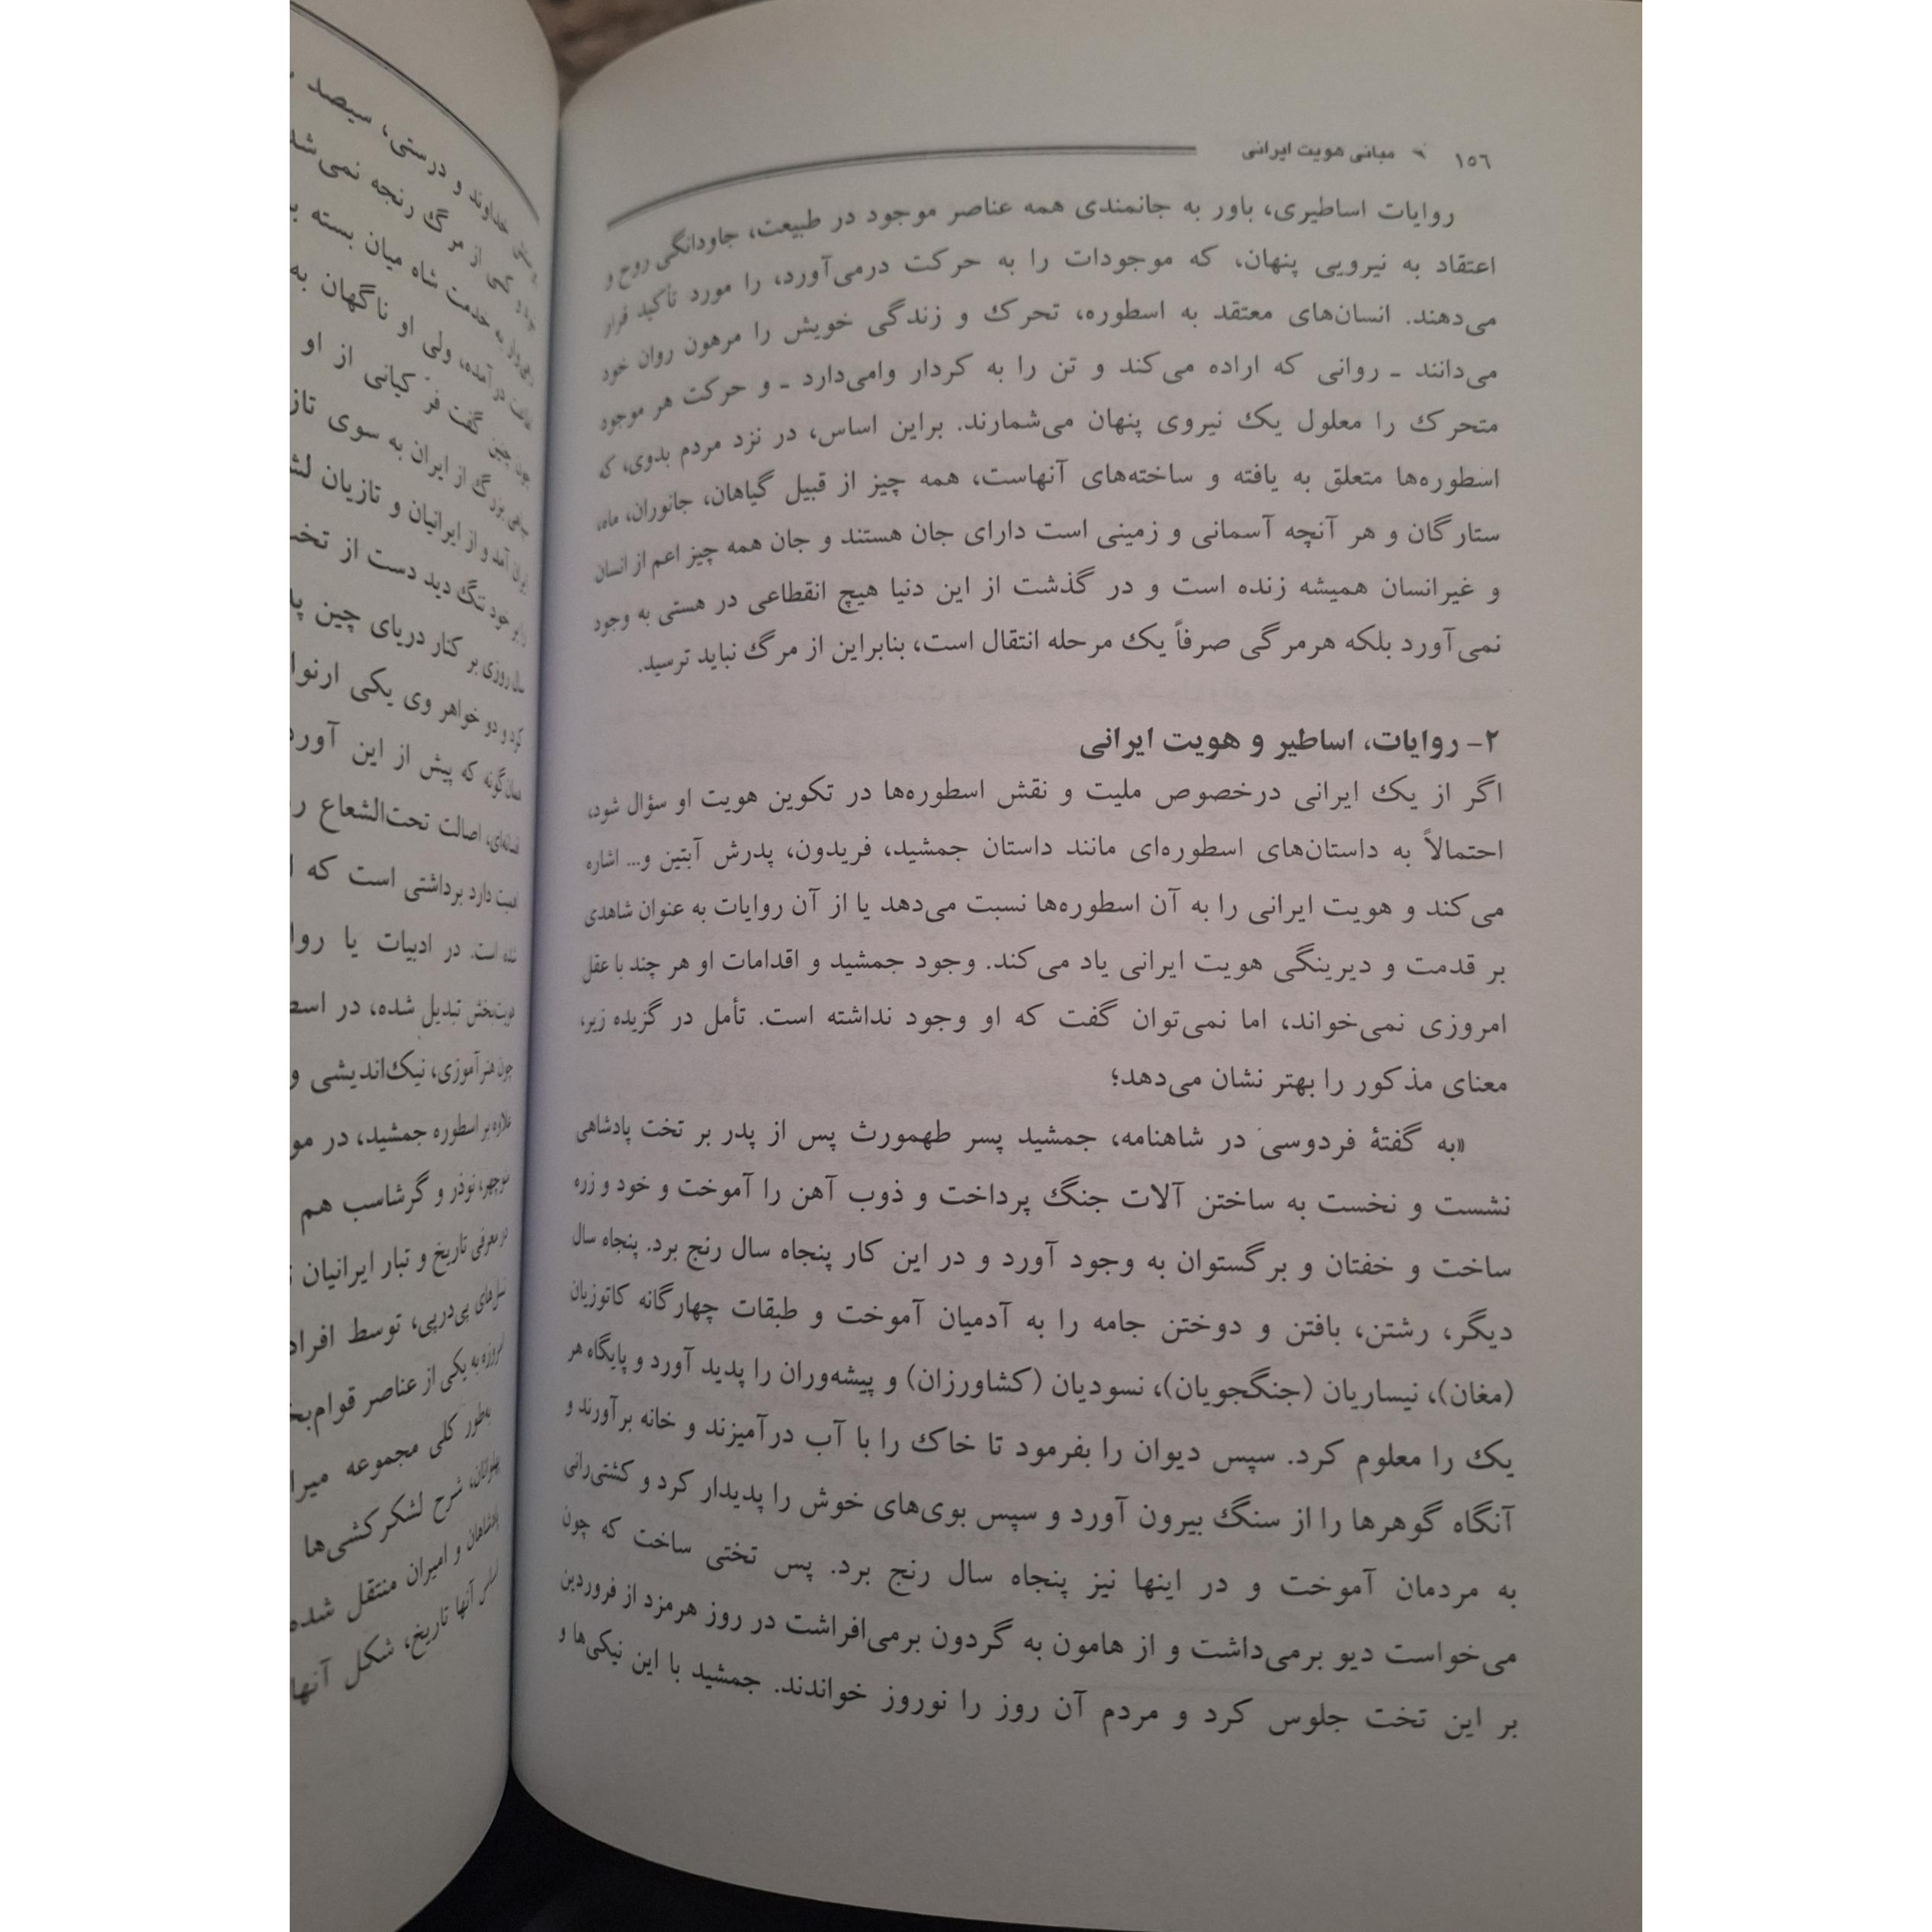 ۱۵۶ مبانی هویت ایرانی
روایات اساطیری، باور به جانمندی همه عناصر موجود در طبیعت، جاودانگی روح و
اعتقاد به نیرویی پنهان، که موجودات را به حرکت درمی‌آورد، را مورد تأکید قرار
می‌دهند. انسان‌های معتقد به اسطوره، تحرک و زندگی خویش را مرهون روان خود
می‌دانند ـ روانی که اراده می‌کند و تن را به کردار وامی‌دارد ـ و حرکت هر موجود
متحرک را معلول یک نیروی پنهان می‌شمارند. براین اساس، در نزد مردم بدوی، که
اسطوره‌ها متعلق به یافته و ساخته‌های آنهاست، همه چیز از قبیل گیاهان، جانوران، ماه،
ستارگان و هر آنچه آسمانی و زمینی است دارای جان هستند و جان همه چیز اعم از انسان
و غیرانسان همیشه زنده است و در گذشت از این دنیا هیچ انقطاعی در هستی به وجود
نمی‌آورد بلکه هرمرگی صرفاً یک مرحله انتقال است، بنابراین از مرگ نباید ترسید.
۲- روایات، اساطیر و هویت ایرانی
اگر از یک ایرانی درخصوص ملیت و نقش اسطوره‌ها در تکوین هویت او سؤال شود،
احتمالاً به داستان‌های اسطوره‌ای مانند داستان جمشید، فریدون، پدرش آبتین و... اشاره
می‌کند و هویت ایرانی را به آن اسطوره‌ها نسبت می‌دهد یا از آن روایات به عنوان شاهدی
بر قدمت و دیرینگی هویت ایرانی یاد می‌کند. وجود جمشید و اقدامات او هر چند با عقل
امروزی نمی‌خواند، اما نمی‌توان گفت که او وجود نداشته است. تأمل در گزیده زیر،
معنای مذکور را بهتر نشان می‌دهد؛
«به گفتهٔ فردوسی در شاهنامه، جمشید پسر طهمورث پس از پدر بر تخت پادشاهی
نشست و نخست به ساختن آلات جنگ پرداخت و ذوب آهن را آموخت و خود و زره
ساخت و خفتان و برگستوان به وجود آورد و در این کار پنجاه سال رنج برد. پنجاه سال
دیگر، رشتن، بافتن و دوختن جامه را به آدمیان آموخت و طبقات چهارگانه کاتوزیان
(مغان)، نیساریان (جنگجویان)، نسودیان (کشاورزان) و پیشه‌وران را پدید آورد و پایگاه هر
یک را معلوم کرد. سپس دیوان را بفرمود تا خاک را با آب درآمیزند و خانه برآورند و
آنگاه گوهرها را از سنگ بیرون آورد و سپس بوی‌های خوش را پدیدار کرد و کشتی‌رانی
به مردمان آموخت و در اینها نیز پنجاه سال رنج برد. پس تختی ساخت که چون
می‌خواست دیو برمی‌داشت و از هامون به گردون برمی‌افراشت در روز هرمزد از فروردین
بر این تخت جلوس کرد و مردم آن روز را نوروز خواندند. جمشید با این نیکی‌ها و
خداوند و درستی، سیصد
از مرگ رنجه نمی‌شد
به خدمت شاه میان بسته
درآمده، ولی او ناگهان به
چون چنین گفت فرّ کیانی از او
بزرگ از ایران به سوی
آمد و از ایرانیان و تازیان
خود تنگ دید دست از
روزی بر کنار دریای چین
کرد و دو خواهر وی یکی
همان‌گونه که پیش از این
اصالت تحت‌الشعاع
اهمیت دارد برداشتی است که
شده است. در ادبیات یا
هویت‌بخش تبدیل شده، در
چون هنرآموزی، نیک‌اندیشی و
علاوه بر اسطوره جمشید، در
منوچهر، نوذر و گرشاسب هم
در معرفی تاریخ و تبار ایرانیان
نسل‌های پی‌درپی، توسط
امروزه به یکی از عناصر
به‌طور کلی مجموعه
پهلوانان، شرح لشکرکشی‌ها
پادشاهان و امیران منتقل
اساس آنها تاریخ، شکل